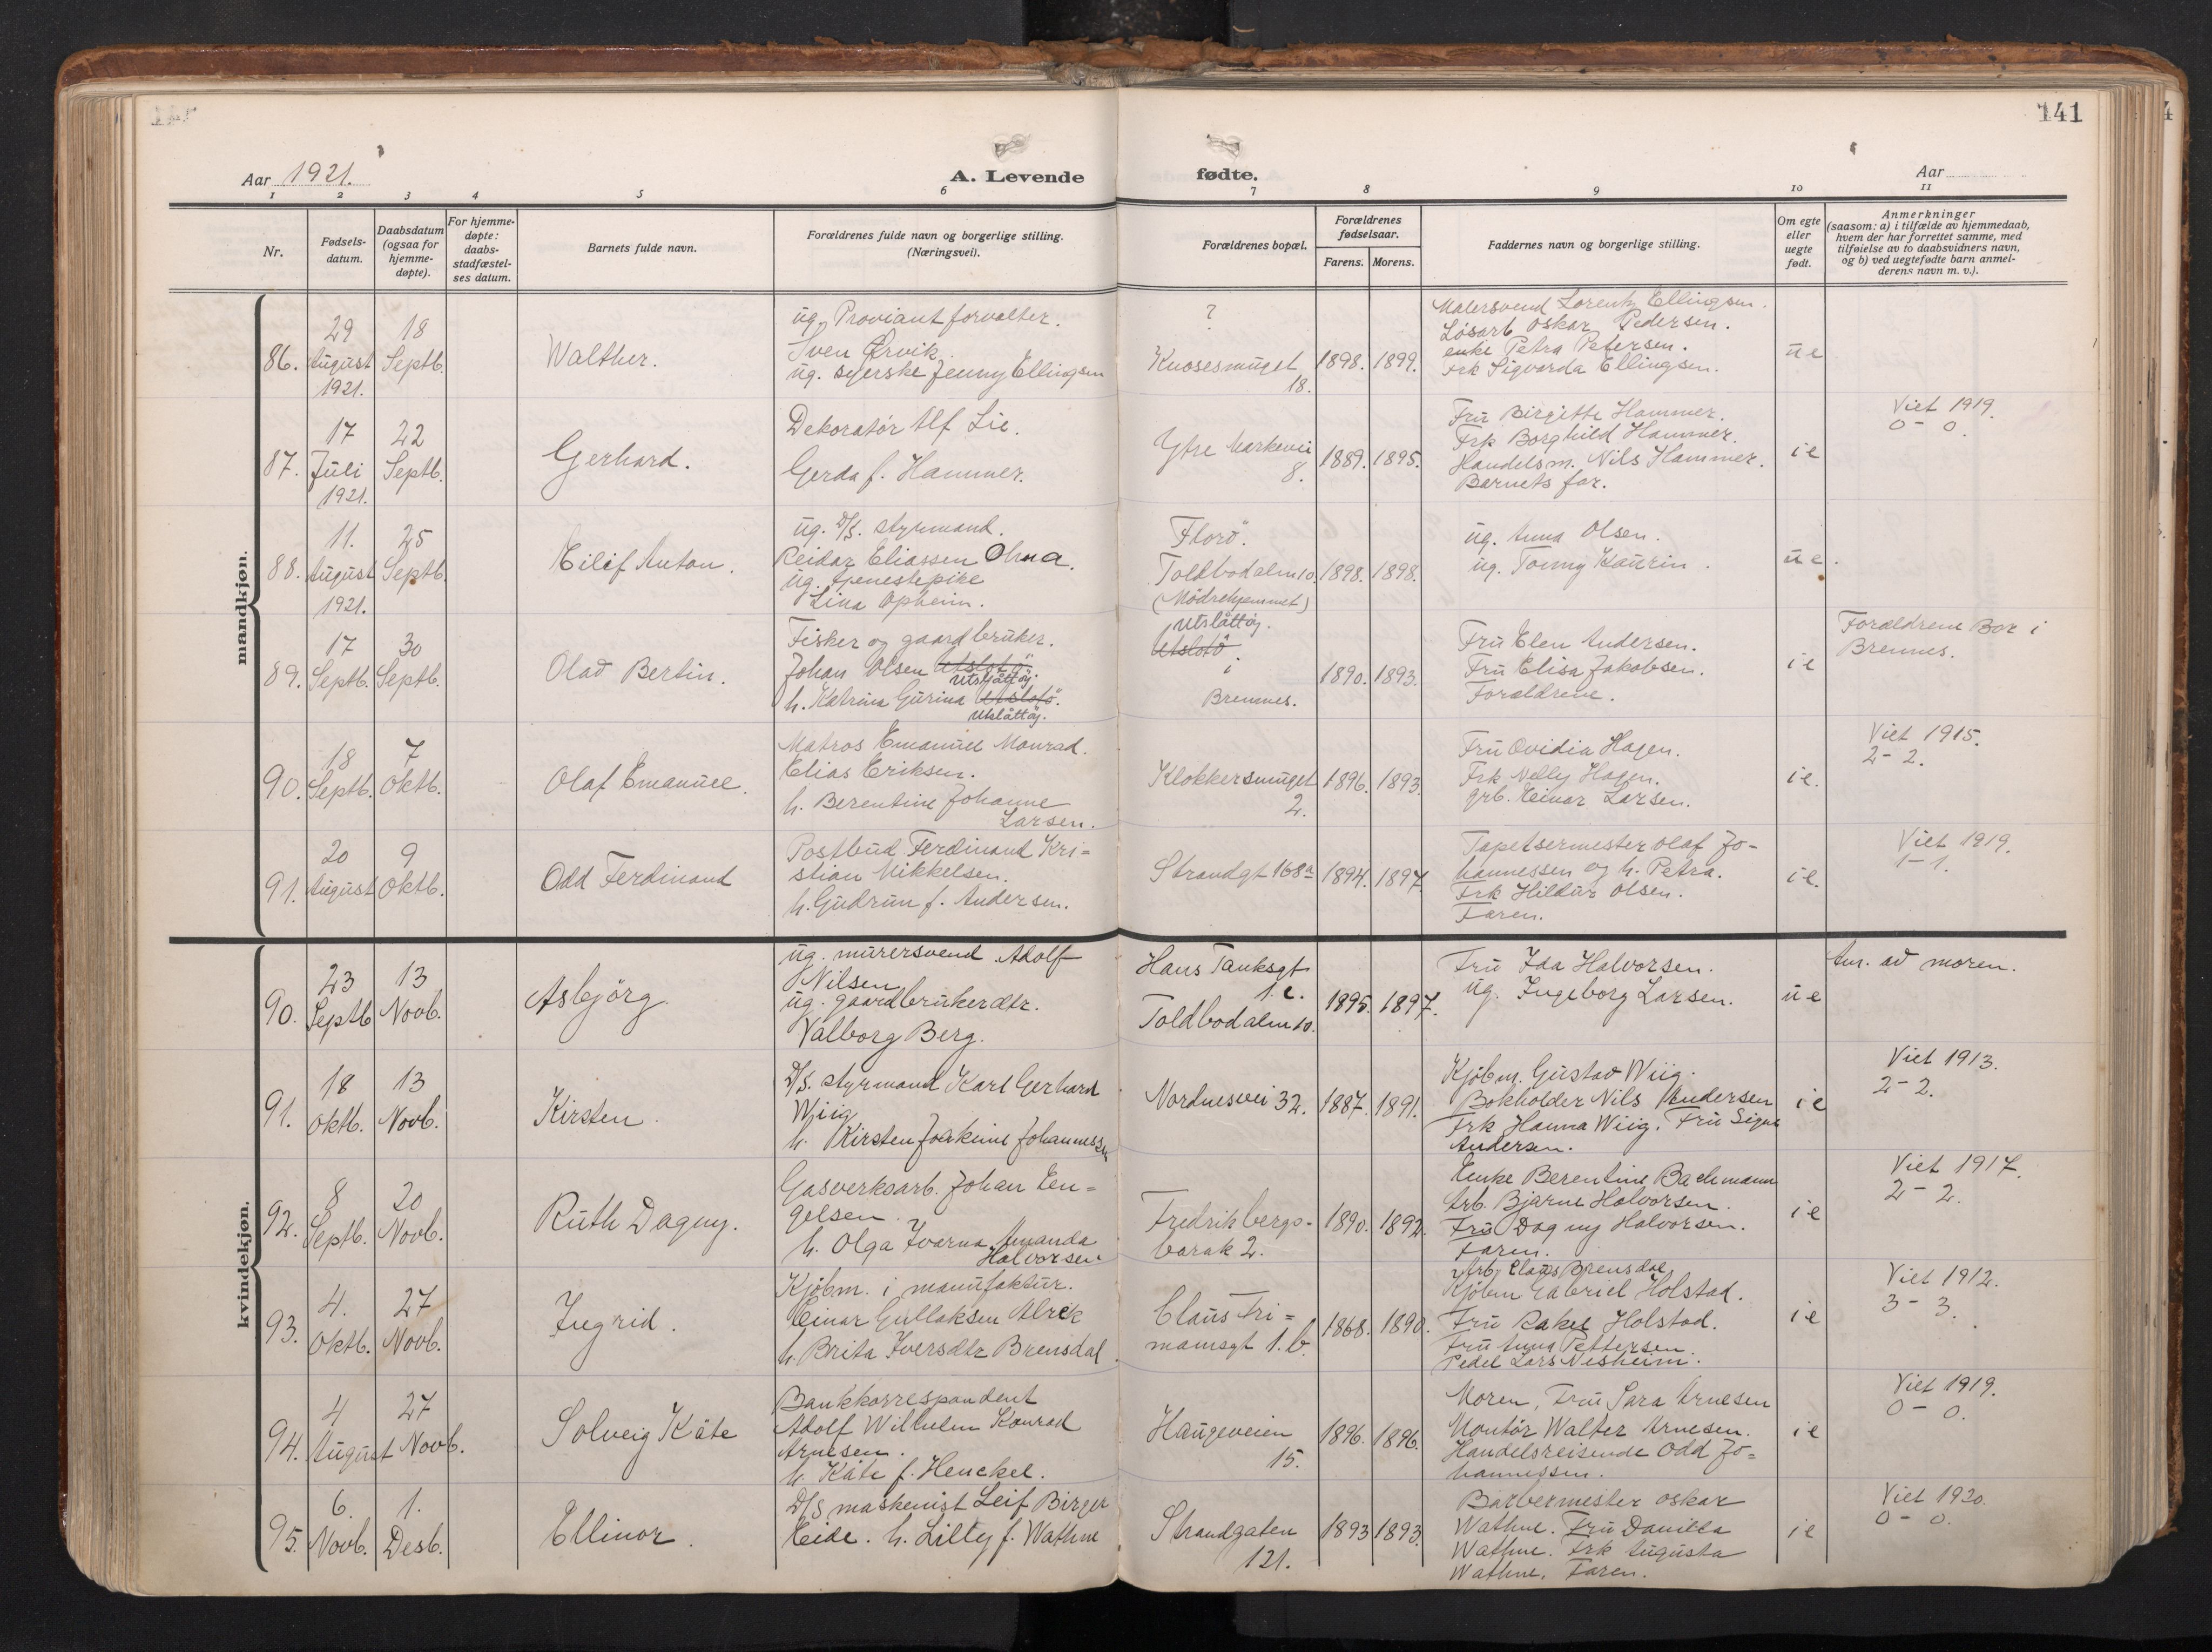 141
Aar 1921.
A. Levende
fødte.
Aar
1 2 3 4 5 6 7 8 9 10 11
Nr.
Fødsels-
datum.
Daabsdatum
(ogsaa for
hjemme-
døpte).
For hjemme-
døpte:
daabs-
stadfæstel-
ses datum.
Barnets fulde navn.
Forældrenes fulde navn og borgerlige stilling.
(Næringsvei).
Forældrenes bopæl.
Forældrenes
fødselsaar.
Farens. Morens.
Faddernes navn og borgerlige stilling.
Om egte
eller
uegte
født.
Anmerkninger
(saasom: a) i tilfælde av hjemmedaab,
hvem der har forrettet samme, med
tilføielse av to daabsvidners navn,
og b) ved uegtefødte barn anmel-
derens navn m. v.).
mandkjøn.
86.
29
August
1921.
18
Septb.
Walther.
ug. Proviantforvalter.
Sven Ørvik.
ug. syerske Jenny Ellingsen
?
Knosesmuget
18.
1898. 1899.
Malersvend Lorentz Ellingsen.
Løsarb Oskar Pedersen.
enke Petra Petersen.
Frk Sigvarda Ellingsen.
ue
87.
17
Juli
1921.
22
Septb.
Gerhard.
Dekoratør Alf Lie.
Gerda f. Hammer.
Ytre Markevei
8.
1889. 1895.
Fru Birgitte Hammer.
Frk Borghild Hammer.
Handelsm. Nils Hammer.
Barnets far.
ie
Viet 1919.
0 - 0.
88.
11.
August
1921.
25
Septb.
Eilif Anton.
ug. D/S. styrmand.
Reidar Eliassen Ohma.
ug. tjenestepike
Lina Opheim.
Florö.
Toldbodalm 10.
(Mödrehjemmet)
1898. 1898.
ug. Anna Olsen.
ug. Tonny Kaurin.
ue.
89.
17
Septb.
30
Septb.
Olav Bertin.
Fisker og gaardbruker.
Johan Olsen Utslotö.
Utslåttøy.
h. Katrina Gurina Utslotö.
Utslåttøy.
Utslåttøy.
Utslotö
i
Bremnes.
1890. 1893.
Fru Elen Andersen.
Fru Elisa Jakobsen.
Forældrene.
ie
Forældrene Bor i
Bremnes.
90.
18
Septb.
7
Oktb.
Olaf Emanuel.
Matros Emanuel Monrad.
Elias Eriksen.
h. Berentine Johanne
Larsen.
Klokkersmuget
2.
1896. 1893.
Fru Ovidia Hagen.
Frk Nelly Hagen.
grb. Einar Larsen.
ie.
Viet 1915.
2 - 2.
91.
20
August
9
Oktb.
Odd Ferdinand
Postbud Ferdinand Kri-
stian Mikkelsen.
h. Gudrun f. Andersen.
Strandgt 168a
1894. 1897
Tapetsermester Olaf Jo-
hannessen og h. Petra.
Frk Hildur Olsen.
Faren.
ie.
Viet 1919.
1 - 1.
kvindekjøn.
90.
23
Septb
13
Novb.
Asbjörg.
ug. murersvend Adolf
Nilsen
ug. gaardbrukerdtr.
Valborg Berg.
Hans Tanksgt
1.c.
Toldbodalm 10.
1895. 1897.
Fru Ida Halvorsen.
ug. Ingeborg Larsen.
ue
Am. av moren.
91.
18
Oktb.
13
Novb.
Kirsten.
D/S. styrmand Karl Gerhard
Wiig
h. Kirsten Joakime Johannessen
Nordnesvei 32.
1887. 1891.
Kjøbm. Gustav Wiig.
Bokholder Nils Andersen
Frk Hanna Wiig. Fru Signe
Andersen.
ie
Viet 1913.
2 - 2.
92.
8
Septb.
20
Novb.
Ruth Dagny.
Gasverksarb. Johan Een-
gelsen.
h. Olga Ivarna Amanda
Halvorsen.
Fredriksbergs-
barak 2.
1890. 1892.
Enke Berentine Bachmann
Arb. Bjarne Halvorsen.
Fru Dagny Halvorsen.
Faren.
ie
Viet 1917.
2 - 2.
93.
4.
Oktb.
27
Novb.
Ingrid.
Kjøbm. i manufaktur.
Einar Gullaksen Alrek
h. Brita Iversdtr Brensdal.
Claus Fri-
manns gt 1.b.
1868. 1890.
Arb. Claus Brensdal
Kjøbm Gabriel Holstad.
Fru Rakel Holstad.
Fru Anna Pettersen.
Pedel Lars Nesheim.
ie
Viet 1912.
3 - 3.
94.
4
August
27
Novb.
Solveig Käte
Bankkorrespondent
Adolf Wilhelm Konrad
Arnesen.
h. Käte f. Henckel.
Haugeveien
15.
1896. 1896.
Moren, Fru Sara Arnesen
Montør Walter Arnesen.
Handelsreisende Odd Jo-
hannessen.
ie
Viet 1919.
0 - 0.
95.
6.
Novb.
1.
Desb.
Ellinor.
D/S maskinist Leif Birger
Eide. h. Lilly f. Wathne
Strandgaten
121.
1893 1893.
Barbermester Oskar
Wathne. Fru Danilla
Wathne. Frk Augusta
Wathne. Faren.
ie
Viet 1920.
0 - 0.